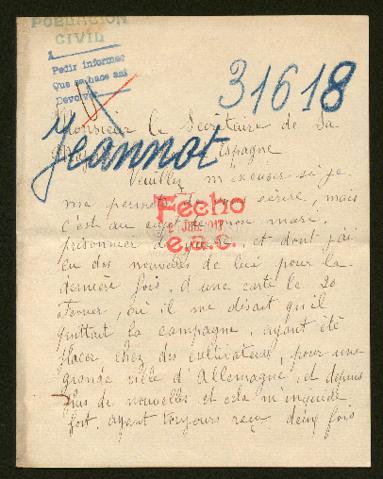 POBLACION
CIVIL
Pedir informes
Que se hace así
Devolver
31618
Jeannot
Monsieur le Secrétaire de Sa
Espagne
Veuillez m'excuser si je
me permets de vous écrire, mais
c'est au sujet de mon mari,
prisonnier de guerre, et dont j'ai
eu des nouvelles de lui pour la
dernière fois, d'une carte le 20
Fevrier, où il me disait qu'il
quittait la campagne, ayant été
placer chez des cultivateurs, pour une
grande ville d'Allemagne, et depuis
plus de nouvelles et cela m'inquiète
fort, ayant toujours reçu deux fois
Fecho
e.a.c.